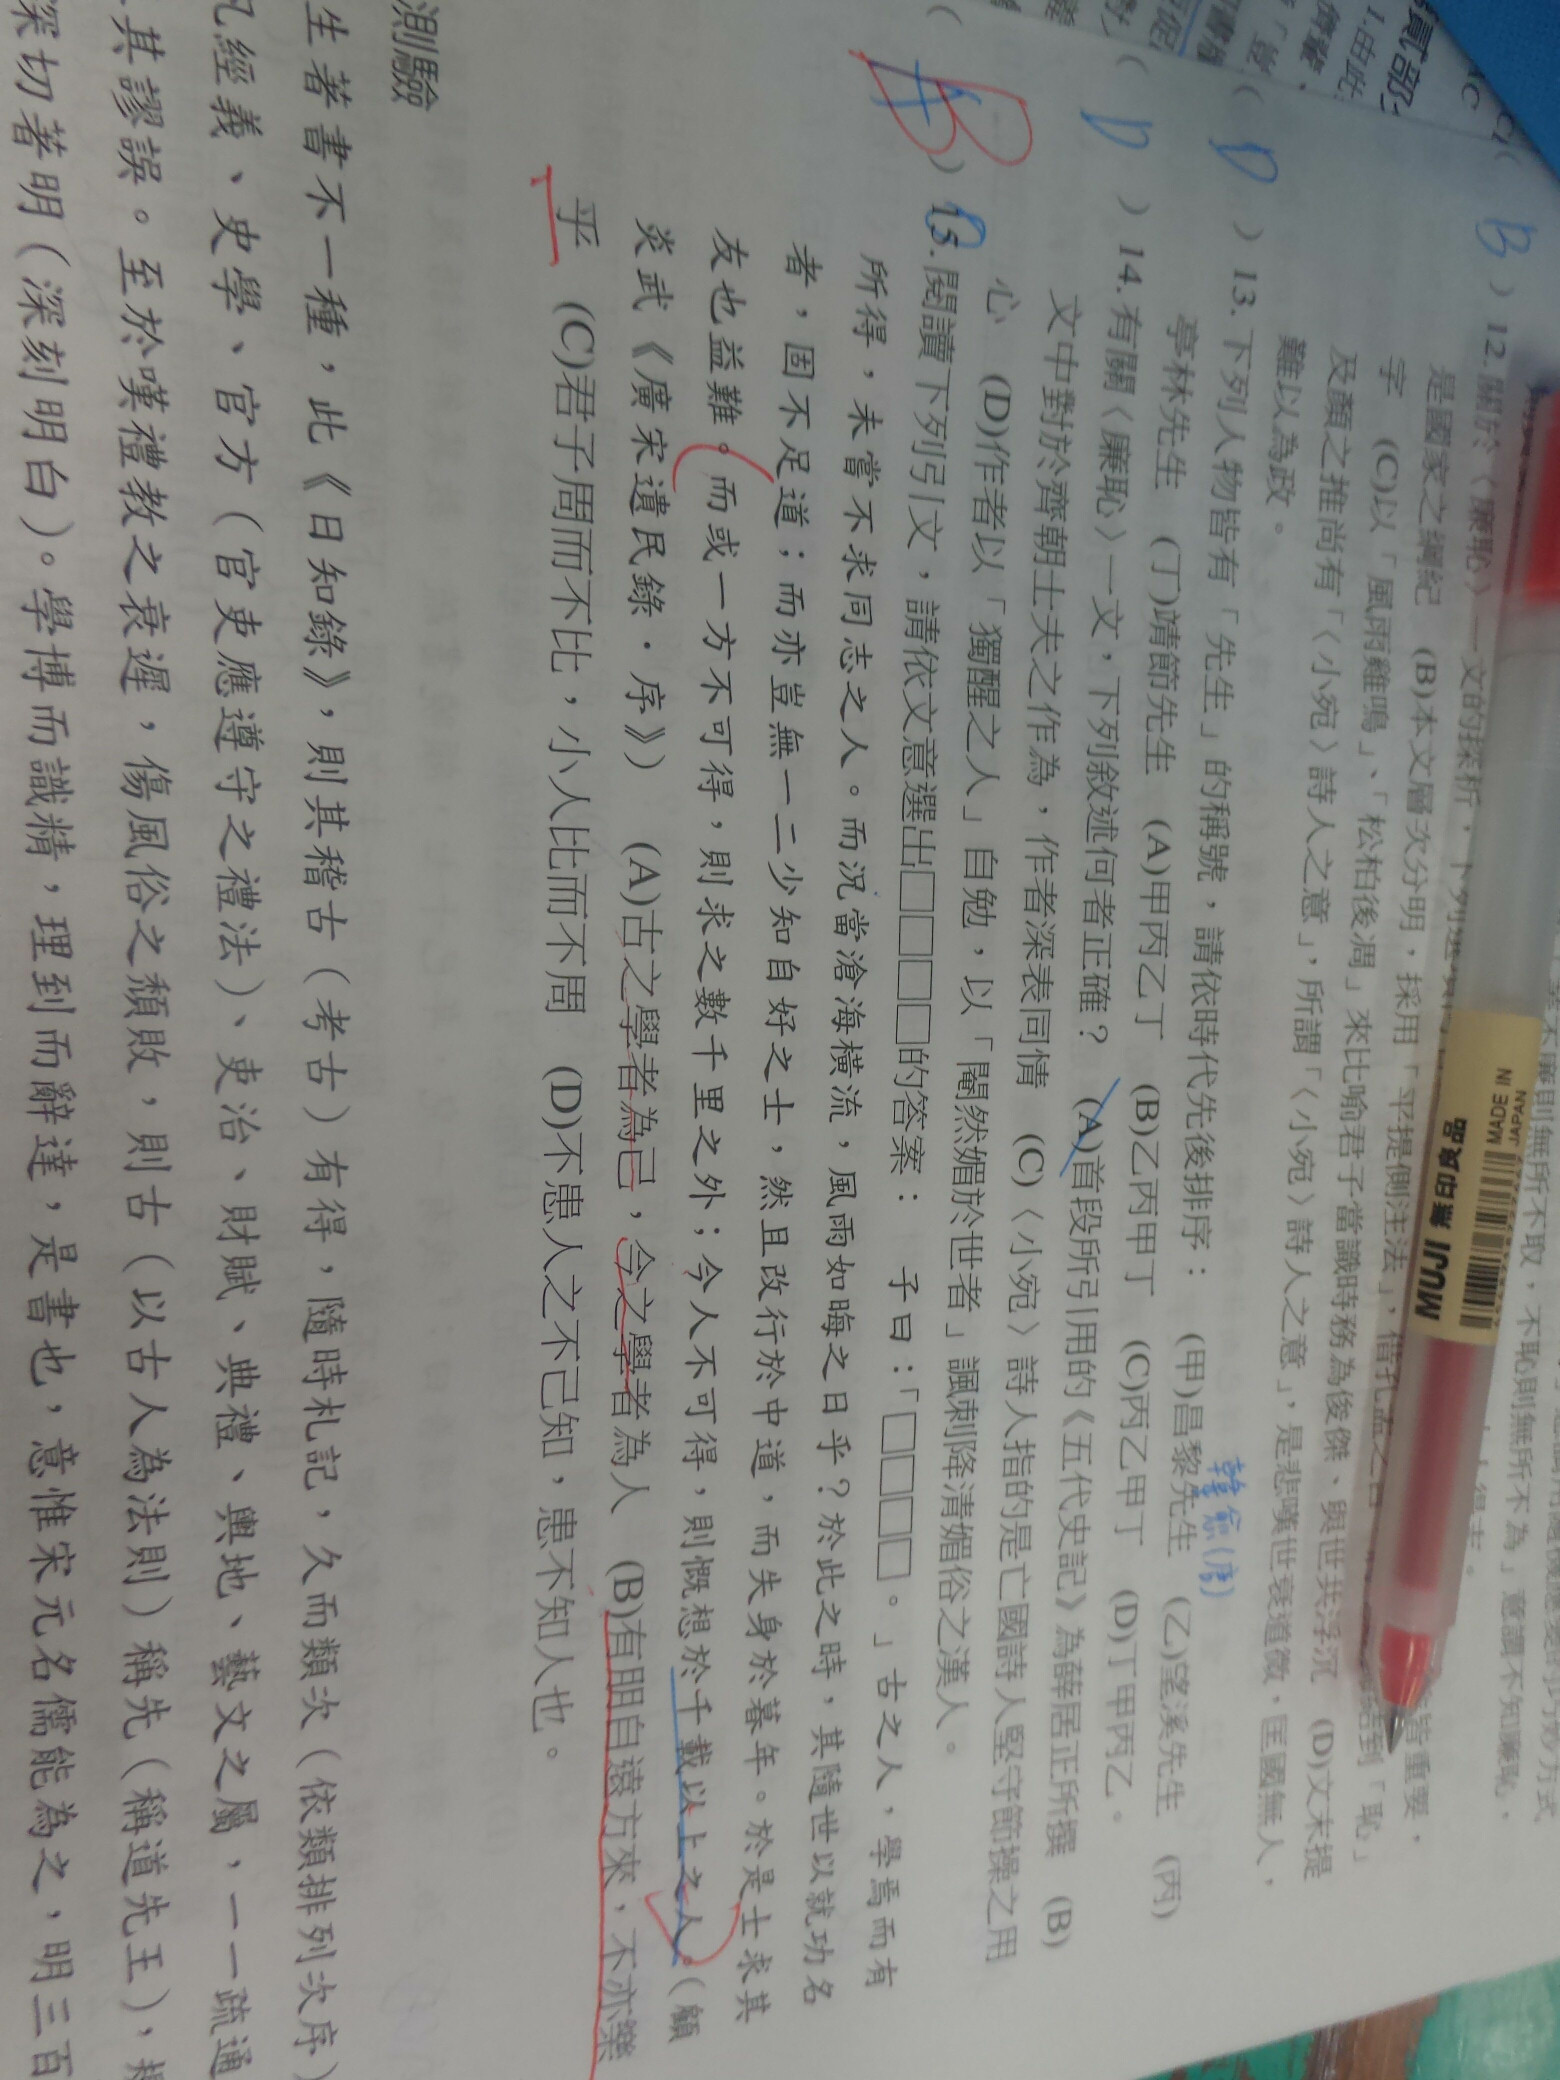 B ) 12.關於〈廉恥〉一文的探析，下列選項
是國家之綱紀　(B)本文層次分明，採用「平提側注法」，借孔孟之言
字　(C)以「風雨雞鳴」、「松柏後凋」來比喻君子當識時務為俊傑、與世共浮沉　(D)文末提
及顏之推尚有「〈小宛〉詩人之意」，所謂「〈小宛〉詩人之意」，是悲嘆世衰道微，匡國無人，
難以為政。
( D ) 13.下列人物皆有「先生」的稱號，請依時代先後排序：　(甲)昌黎先生　(乙)望溪先生　(丙)
韓愈(唐)
亭林先生　(丁)靖節先生　(A)甲丙乙丁　(B)乙丙甲丁　(C)丙乙甲丁　(D)丁甲丙乙。
( D ) 14.有關〈廉恥〉一文，下列敘述何者正確？　(A)首段所引用的《五代史記》為薛居正所撰　(B)
文中對於齊朝士夫之作為，作者深表同情　(C)〈小宛〉詩人指的是亡國詩人堅守節操之用
心　(D)作者以「獨醒之人」自勉，以「閹然媚於世者」諷刺降清媚俗之漢人。
( B ) 15.閱讀下列引文，請依文意選出□□□□的答案：　子曰：「□□□□。」古之人，學焉而有
所得，未嘗不求同志之人。而況當滄海橫流，風雨如晦之日乎？於此之時，其隨世以就功名
者，固不足道；而亦豈無一二少知自好之士，然且改行於中道，而失身於暮年。於是士求其
友也益難。而或一方不可得，則求之數千里之外；今人不可得，則慨想於千載以上之人。（顧
炎武《廣宋遺民錄‧序》）　(A)古之學者為己，今之學者為人　(B)有朋自遠方來，不亦樂
乎　(C)君子周而不比，小人比而不周　(D)不患人之不己知，患不知人也。
測驗
生著書不一種，此《日知錄》，則其稽古（考古）有得，隨時札記，久而類次（依類排列次序）
凡經義、史學、官方（官吏應遵守之禮法）、吏治、財賦、典禮、輿地、藝文之屬，一一疏通
其謬誤。至於嘆禮教之衰遲，傷風俗之頹敗，則古（以古人為法則）稱先（稱道先王），
深切著明（深刻明白）。學博而識精，理到而辭達，是書也，意惟宋元名儒能為之，明三百
MUJI 無印良品
MADE IN
JAPAN